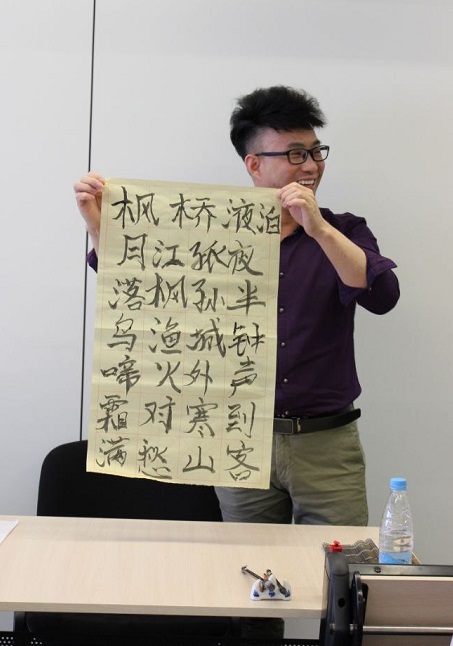 枫桥液泊
月落乌啼霜满
江枫渔火对愁
孤孙城外寒山
夜半钟声到客